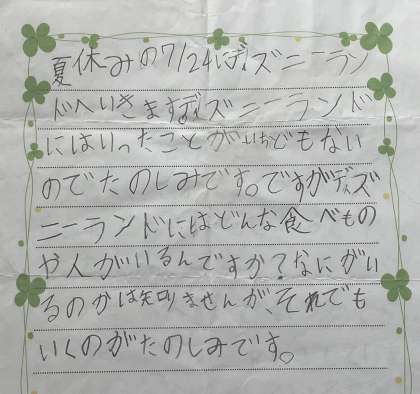 夏休みの7/24にディズニーラン
ドへいきますディズニーランド
にはいったことがいちどもない
のでたのしみです。ですがディズ
ニーランドにはどんな食べもの
や人がいるんですか?なにがい
るのかは知りませんが、それでも
いくのがたのしみです。